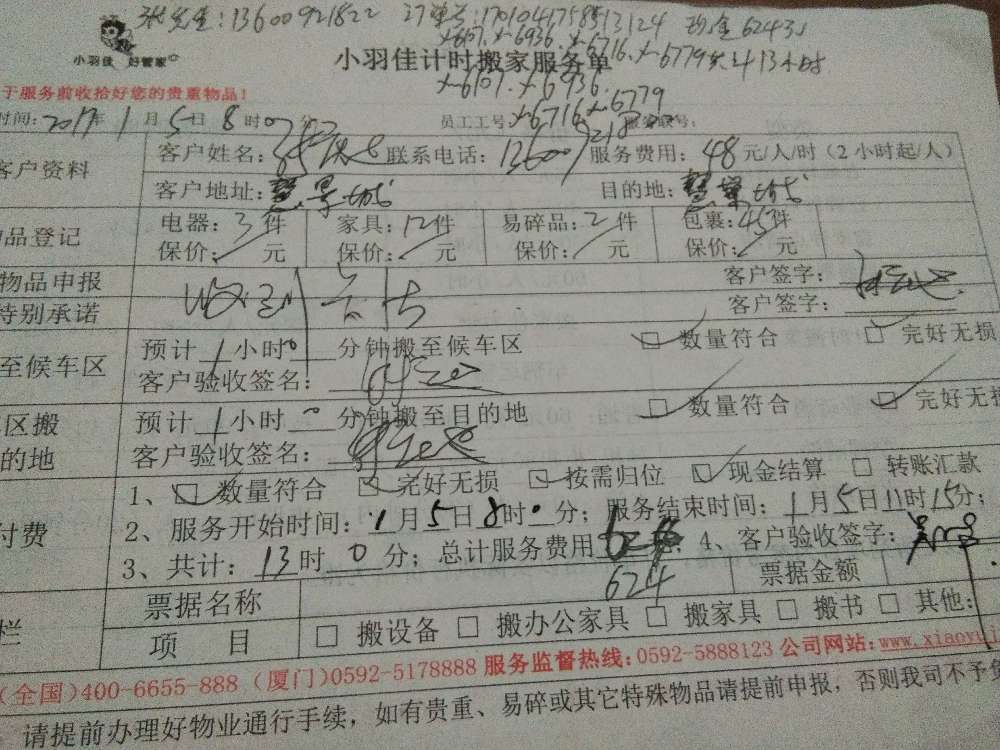 张先生：13600921822 订单号：1701041758513124 现金624元
X-6107. X-6936. X-6716. X-6779 共计13小时
小羽佳 好管家
小羽佳计时搬家服务单
X-6107. X-6936.
X-6716 X-6779
于服务前收拾好您的贵重物品！
时间：2017年1月5日8时0分 员工工号：
客户资料 客户姓名： 联系电话： 服务费用：48元/人/时（2小时起/人）
客户地址：慧景城 目的地：慧景城
品登记 电器：3件 家具：12件 易碎品：2件 包裹：45件
保价： 元 保价： 元 保价： 元 保价： 元
物品申报 客户签字：
特别承诺 客户签字：
至候车区 预计1小时0分钟搬至候车区 数量符合 完好无损
客户验收签名：
区搬 预计1小时0分钟搬至目的地 数量符合 完好无损
的地 客户验收签名：
付费 1、数量符合 完好无损 按需归位 现金结算 转账汇款
2、服务开始时间：1月5日8时0分；服务结束时间：1月5日11时15分；
3、共计：13时0分；总计服务费用 4、客户验收签字：
624
栏 票据名称 票据金额
项 目 搬设备 搬办公家具 搬家具 搬书 其他：
（全国）400-6655-888（厦门）0592-5178888 服务监督热线：0592-5888123 公司网站：www.xiaoyuj
请提前办理好物业通行手续，如有贵重、易碎或其它特殊物品请提前申报，否则我司不予负